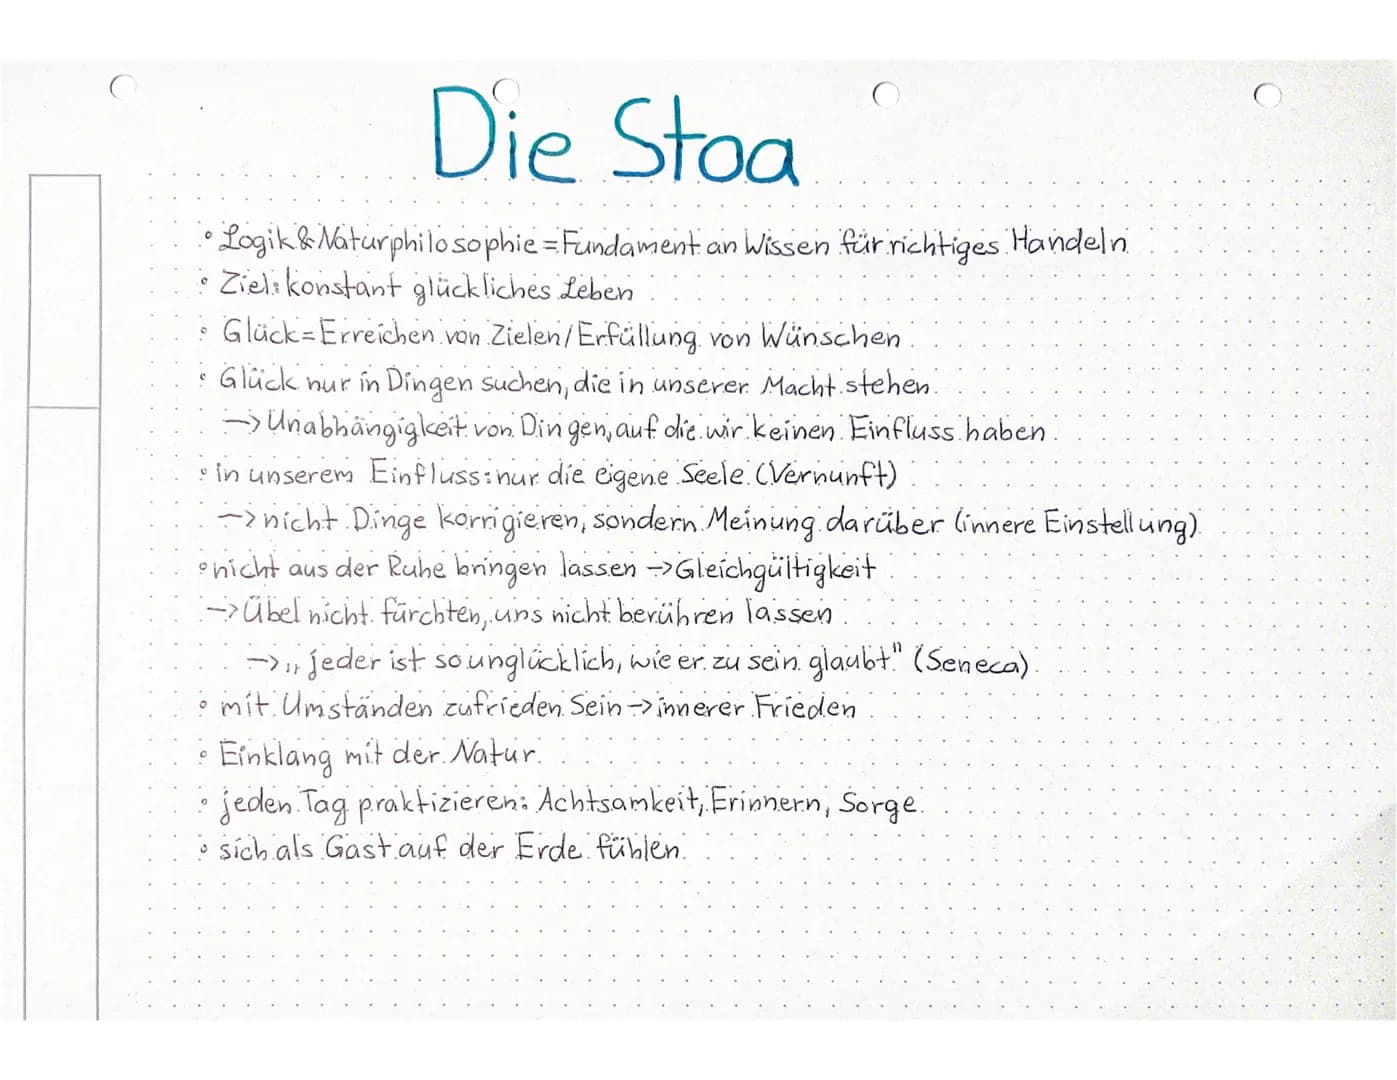 Die Stoa
• Logik & Naturphilosophie = Fundament an Wissen für richtiges Handeln
• Ziel: konstant glückliches Leben
• Glück = Erreichen von Zielen / Erfüllung von Wünschen
• Glück nur in Dingen suchen, die in unserer Macht stehen
-> Unabhängigkeit von Dingen, auf die wir keinen Einfluss haben
• in unserem Einfluss: nur die eigene Seele (Vernunft)
-> nicht Dinge korrigieren, sondern Meinung darüber (innere Einstellung)
• nicht aus der Ruhe bringen lassen -> Gleichgültigkeit
-> Übel nicht fürchten, uns nicht berühren lassen
-> „jeder ist so unglücklich, wie er zu sein glaubt" (Seneca)
• mit Umständen zufrieden Sein -> innerer Frieden
• Einklang mit der Natur
• jeden Tag praktizieren: Achtsamkeit, Erinnern, Sorge
• sich als Gast auf der Erde fühlen